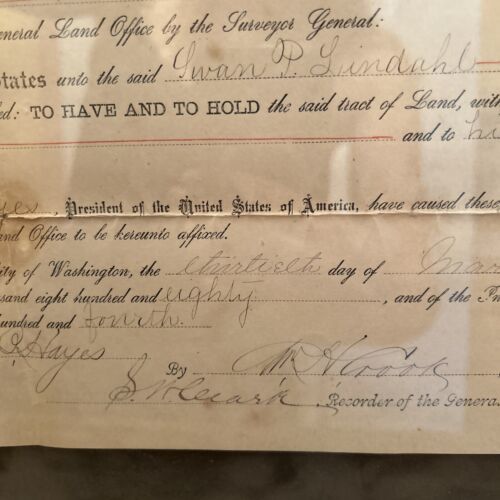 General Land Office by the Surveyor General:
States unto the said Swan P. Lindahl
ed: TO HAVE AND TO HOLD the said tract of Land, with
and to
yes, President of the United States of America, have caused these
and Office to be hereunto affixed.
ity of Washington, the thirtieth day of Mar
usand eight hundred and eighty, and of the In
hundred and fourth.
Hayes
By Wm H Crook
Recorder of the General